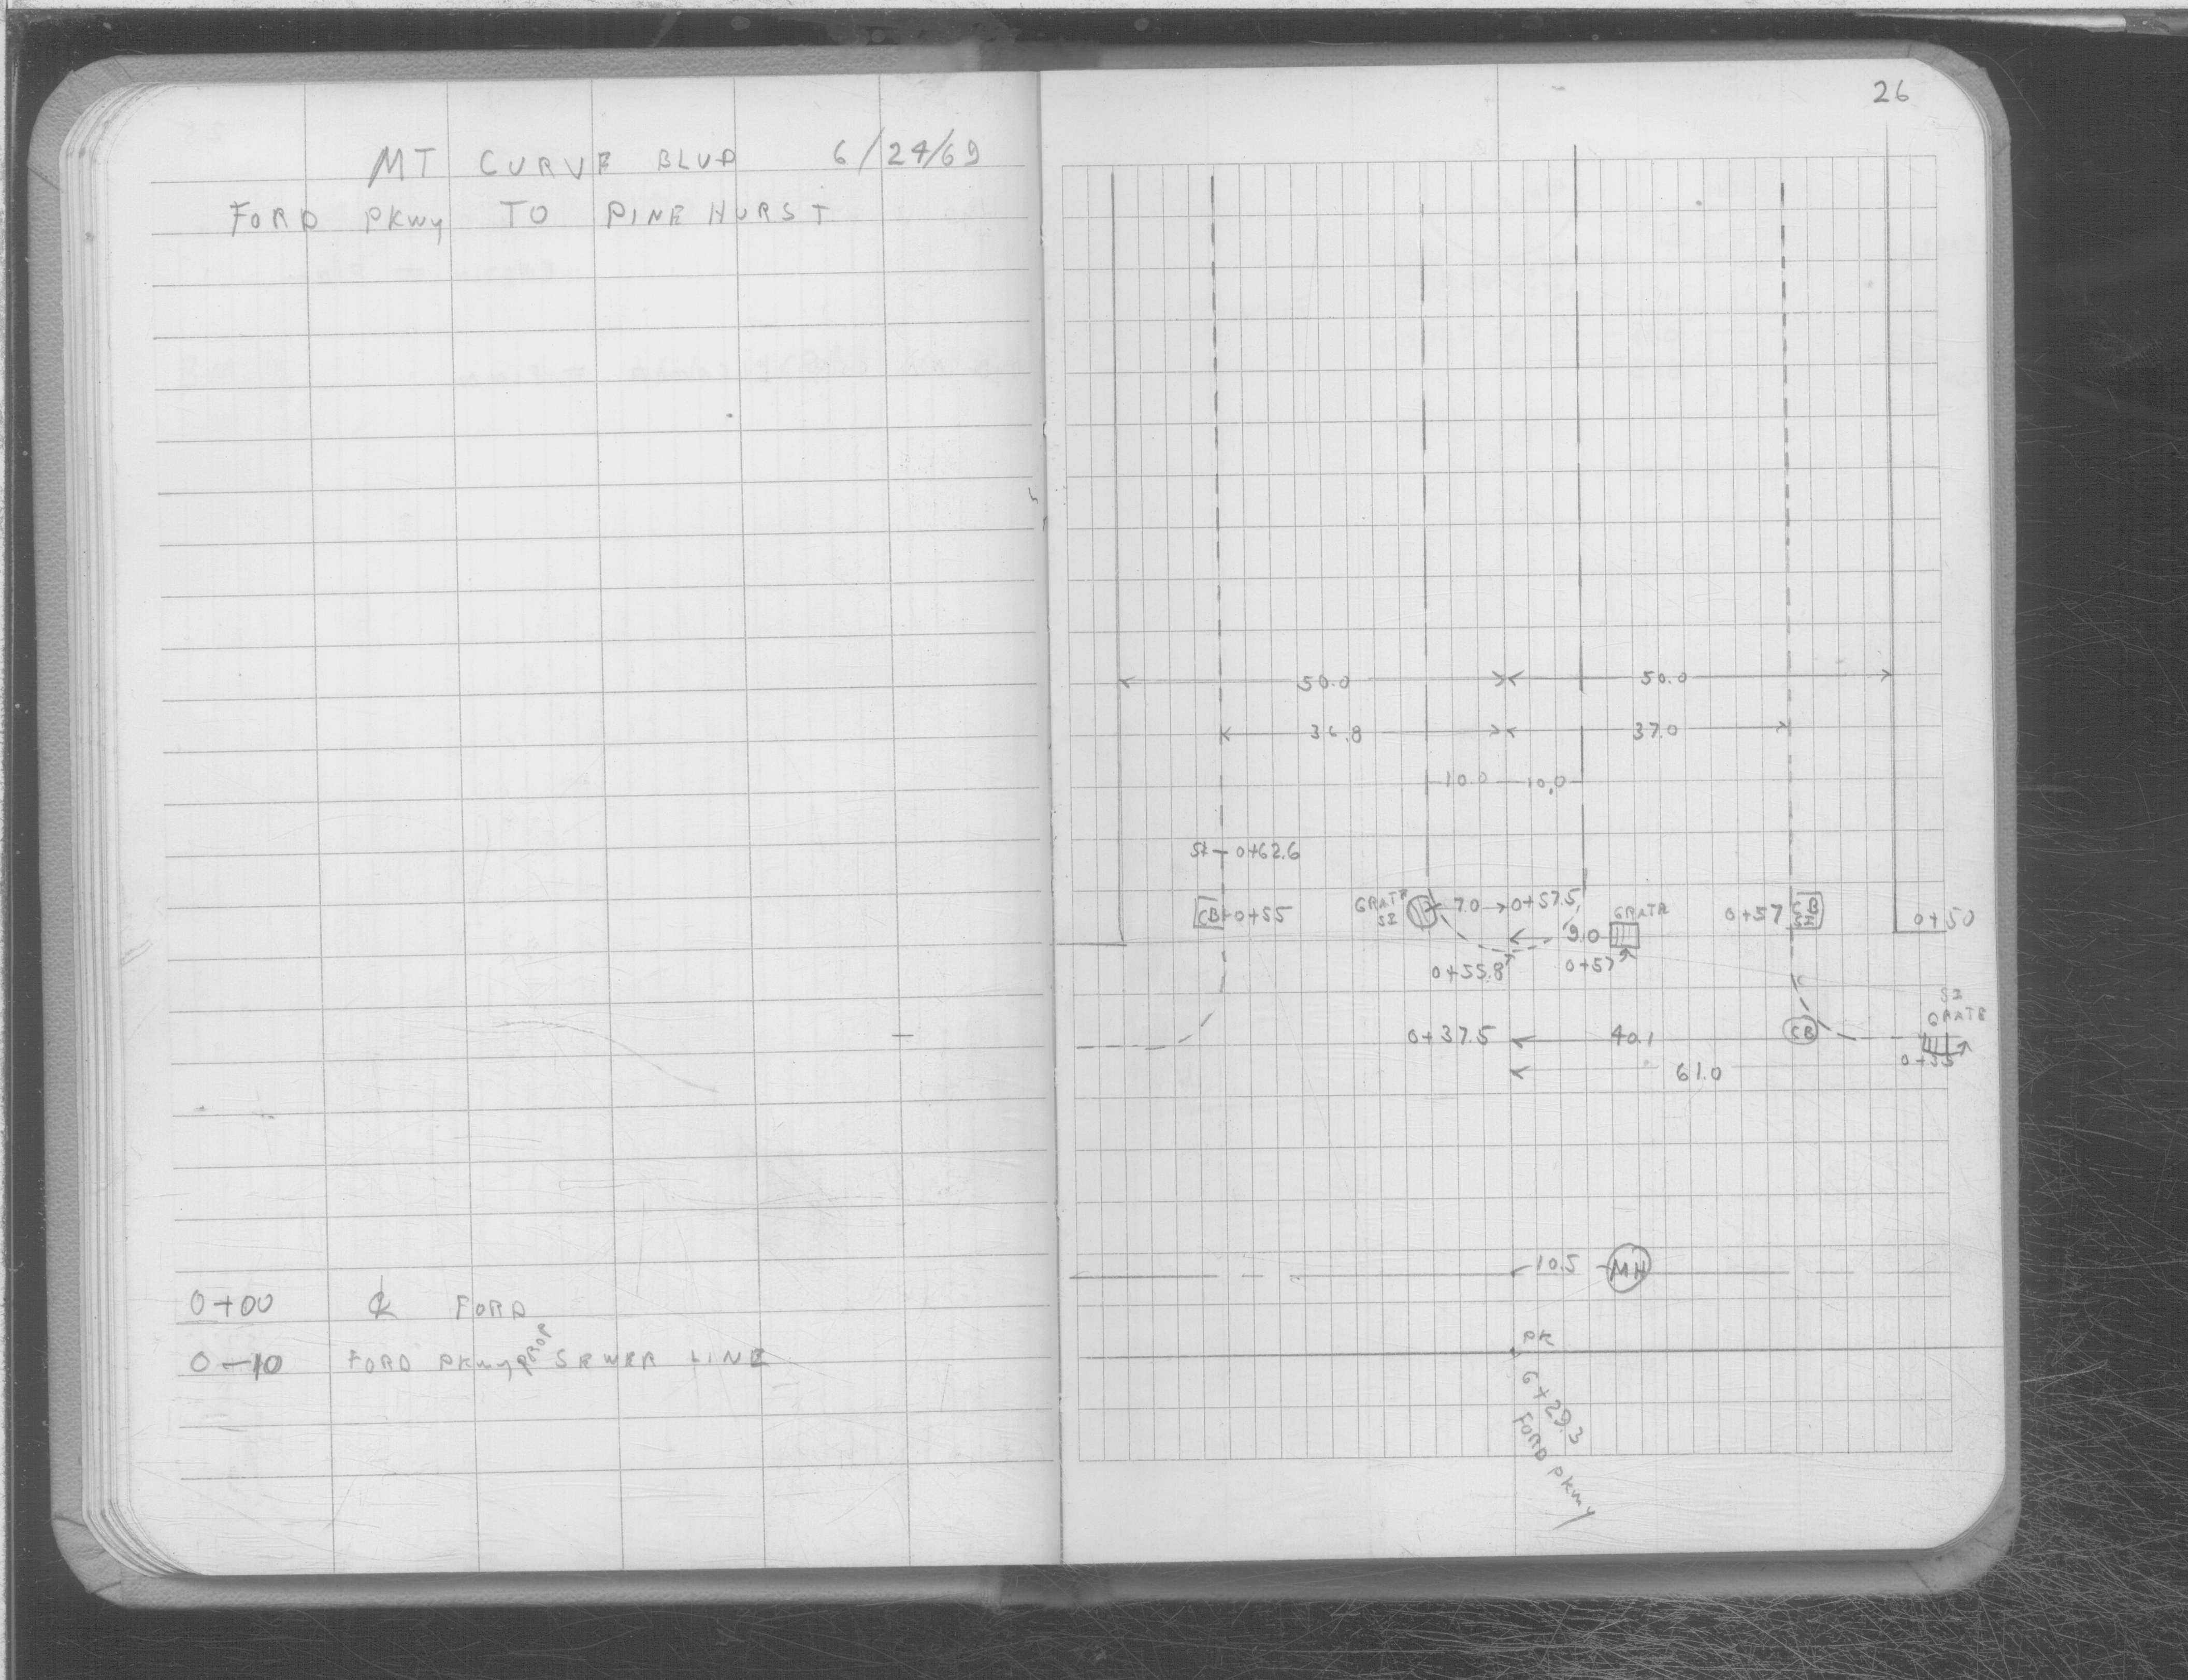 MT CURVE BLVD 6/24/69
FORD PKwy TO PINEHURST
0+00 ℄ FORD
0-10 FORD PKwy PROP SEWER LINE
26
50.0 50.0
36.8 37.0
10.0 10.0
0+62.6
CB 0+55
GRATE
SI
7.0 0+57.5
GRATE
0+57 CB
SI
0+50
9.0
0+55.8 0+57
SI
GRATE
0+37.5 40.1 CB
0+35
61.0
10.5 MH
PK
6+29.3
FORD PKWY